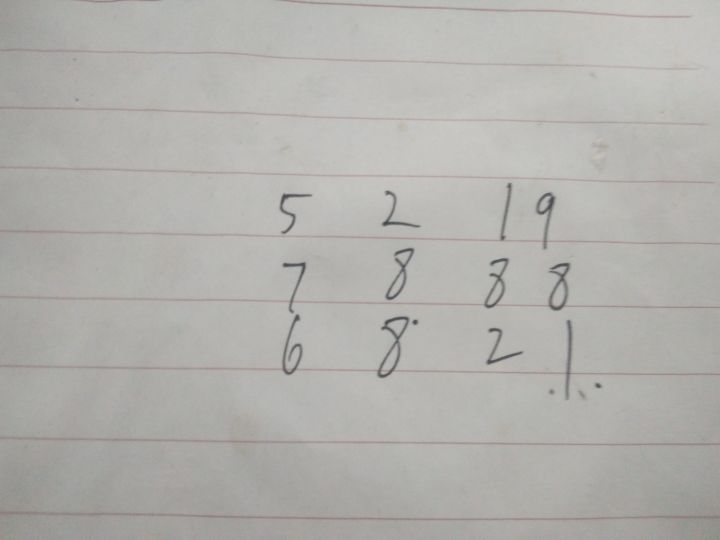 5 2 19
7 8 8 8
6 8 2 1